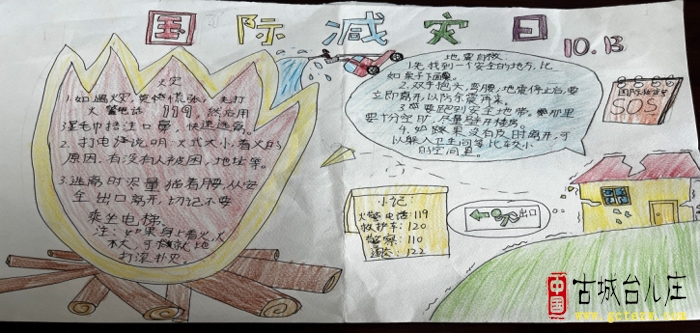 国际减灾日
10.13
火灾
1.如遇火灾,莫惊慌张,先打
火警电话119,然后用
湿毛巾捂住口鼻,快速逃离。
2.打电话说明火式大小,着火的
原因,有没有人被困,地址等。
3.逃离时尽量猫着腰,从安
全出口离开,切记不要
乘坐电梯。
注:如果身上着火,火
不大,可
打滚扑灭。
地震自救
1.先找到一个安全的地方,比
如桌子下面。
2.双手抱头,弯腰,地震停止后,要
立即离开,以防余震再来。
3.要跑到安全地带。要那里
要十分空旷,尽量避开楼房。
4.如果没有及时离开,可
以躲入卫生间等比较小
的空间里。
国际
SOS
小记:
火警电话:119
救护车:120
警察:110
122
出口
中国
古城台儿庄